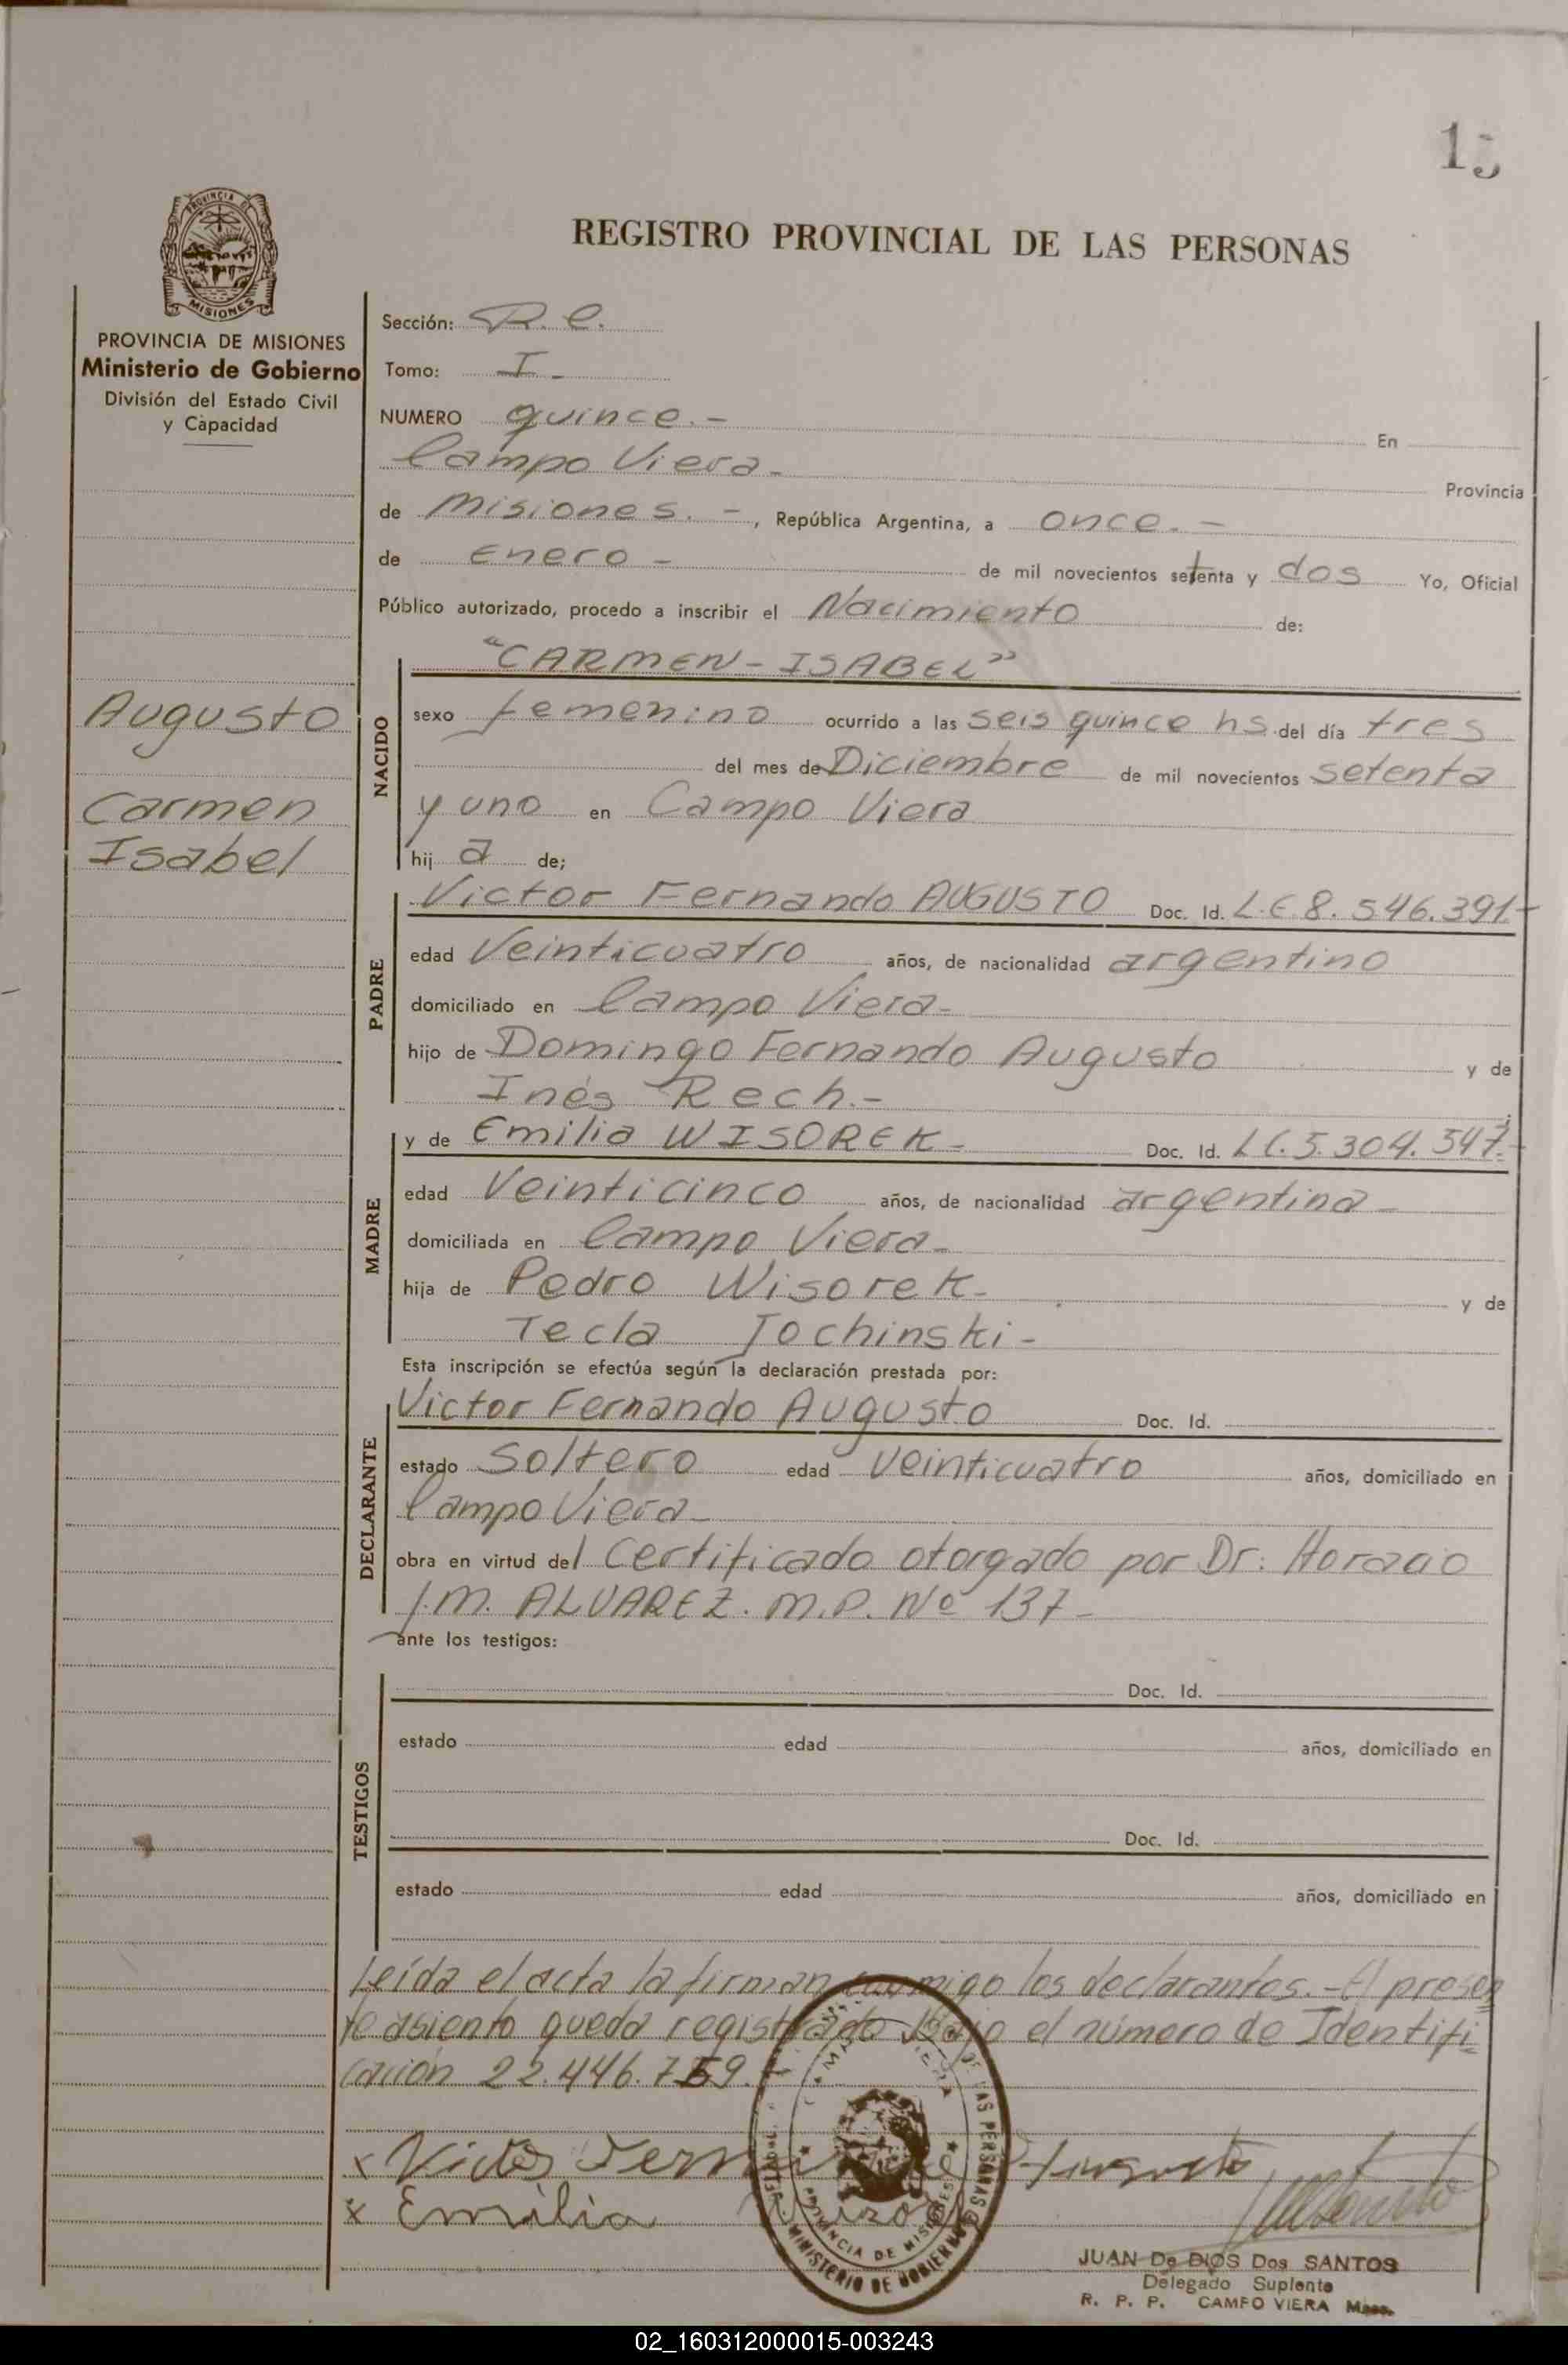 15
REGISTRO PROVINCIAL DE LAS PERSONAS
PROVINCIA DE
MISIONES
PROVINCIA DE MISIONES
Ministerio de Gobierno
División del Estado Civil
y Capacidad
Augusto
Carmen
Isabel
Sección: R.C.
Tomo: I -
NUMERO quince.- En
Campo Viera - Provincia
de Misiones. - , República Argentina, a once. -
de Enero - de mil novecientos setenta y dos Yo, Oficial
Público autorizado, procedo a inscribir el Nacimiento de:
NACIDO
"CARMEN - ISABEL"
sexo femenino ocurrido a las seis quince hs. del día tres
del mes de Diciembre de mil novecientos setenta
y uno en Campo Viera
hij a de;
PADRE
Victor Fernando AUGUSTO Doc. Id. L.E. 8. 546.391-
edad Veinticuatro años, de nacionalidad argentino
domiciliado en Campo Viera-
hijo de Domingo Fernando Augusto y de
Inés Rech.-
MADRE
y de Emilia WISOREK- Doc. Id. L.C. 5.304.547.-
edad Veinticinco años, de nacionalidad argentina -
domiciliada en Campo Viera-
hija de Pedro Wisorek- y de
Tecla Jochinski -
Esta inscripción se efectúa según la declaración prestada por:
DECLARANTE
Victor Fernando Augusto Doc. Id.
estado Soltero edad veinticuatro años, domiciliado en
Campo Viera-
obra en virtud del Certificado otorgado por Dr. Horacio
J.M. ALVAREZ. M.P. Nº 137-
ante los testigos:
TESTIGOS
Doc. Id.
estado edad años, domiciliado en
Doc. Id.
estado edad años, domiciliado en
Leída el acta la firman conmigo los declarantes.- El presen
te asiento queda registrado bajo el número de Identifi
cación 22.446.759.-
x Victor Fernando Augusto
x Emilia
PROVINCIA DE MISIONES
MINISTERIO DE GOBIERNO
DE LAS PERSONAS
JUAN De DIOS Dos SANTOS
Delegado Suplente
R. P. P. CAMPO VIERA Mnes.
02_160312000015-003243